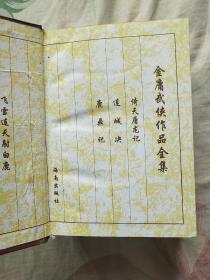 金庸武侠作品全集
倚天屠龙记
连城决
鹿鼎记
海南出版社
飞雪连天射白鹿